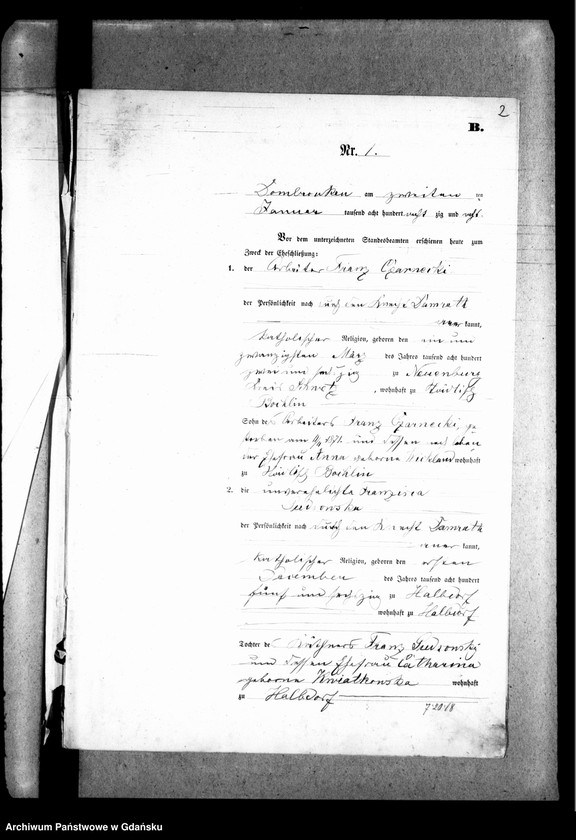 2
B.
Nr. 1.
Dombrowken am zweiten
Januar tausend acht hundert acht zig und acht.
Vor dem unterzeichneten Standesbeamten erschienen heute zum
Zweck der Eheschließung:
1. der Arbeiter Franz Czarnecki
der Persönlichkeit nach durch den Knecht Damrath
kannt,
katholischer Religion, geboren den ein und
zwanzigsten März des Jahres tausend acht hundert
zwei und sechzig zu Neuenburg
Kreis Schwetz, wohnhaft zu
Bochlin
Sohn des Arbeiters Franz Czarnecki, ge
storben am und dessen
Ehefrau Anna geborne wohnhaft
zu Bochlin
2. die unverehelichte Franzisca
der Persönlichkeit nach durch den Knecht Damrath
kannt,
katholischer Religion, geboren den ersten
December des Jahres tausend acht hundert
fünf und sechzig zu Halbdorf
wohnhaft zu Halbdorf
Tochter des Käthners Franz
und dessen Ehefrau Catharina
geborne Kwiatkowska wohnhaft
zu Halbdorf
Archiwum Państwowe w Gdańsku